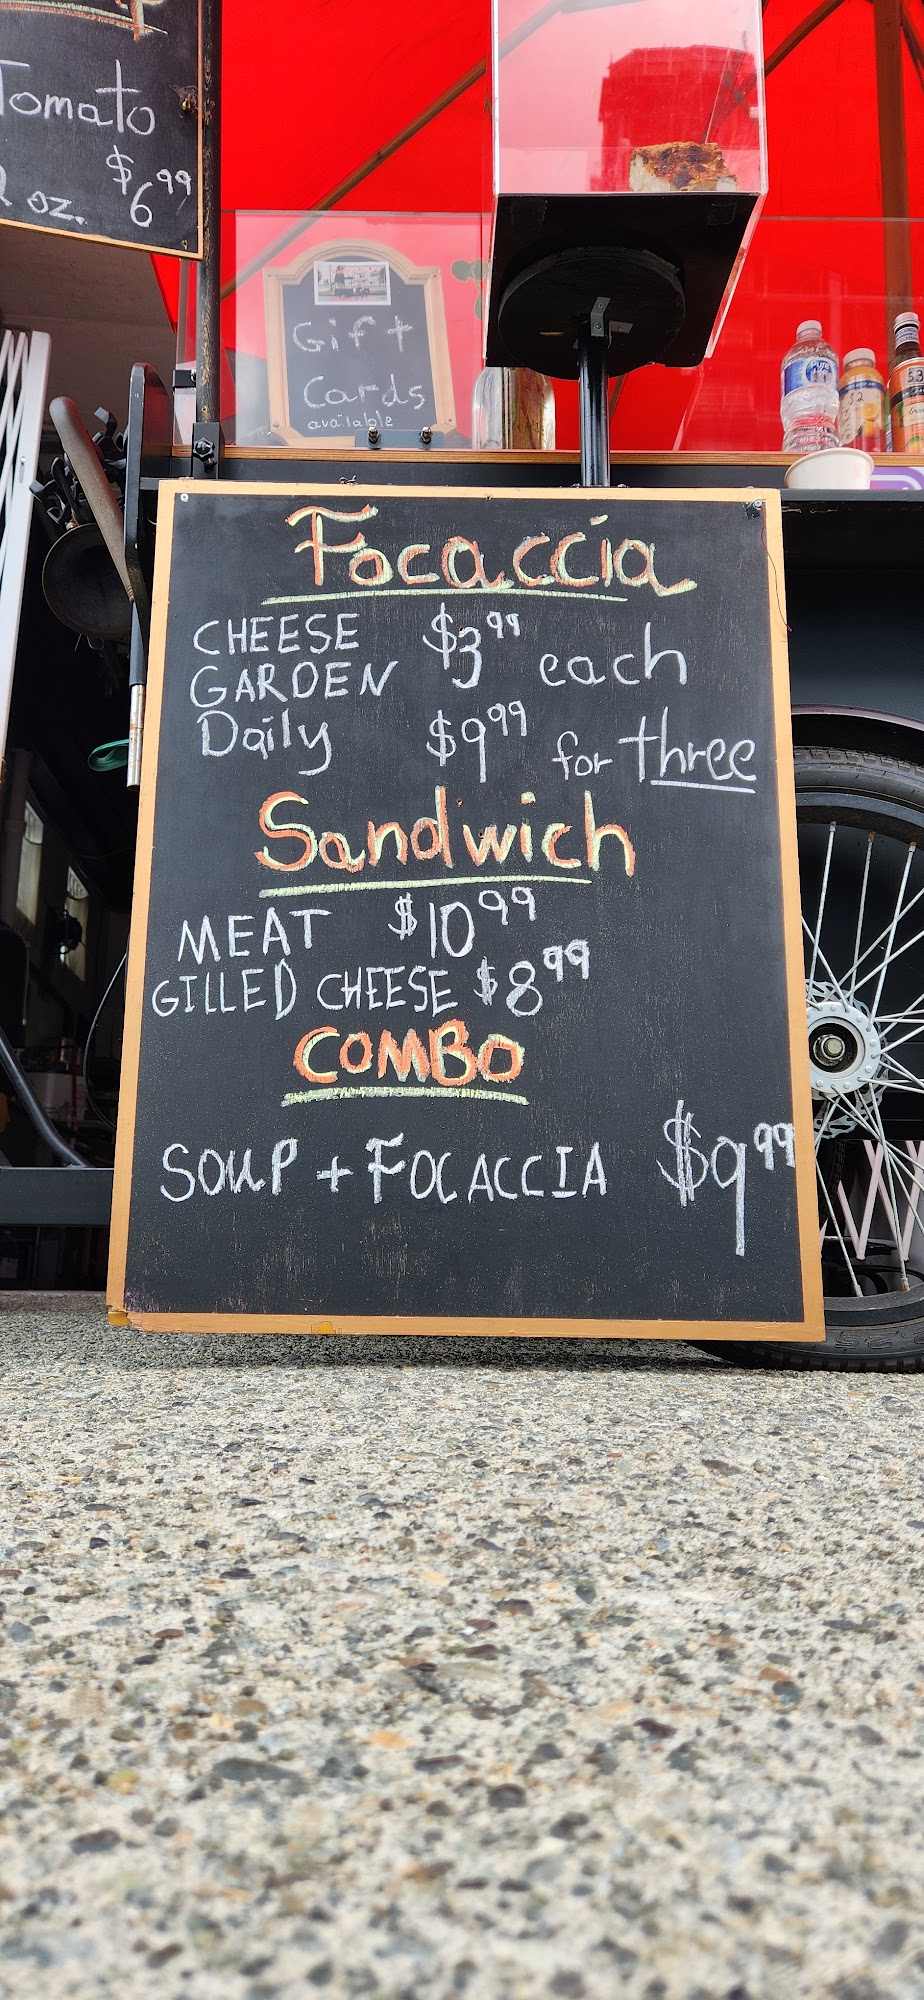 Tomato
oz. $6.99
Gift
Cards
available
Pure
$2
5.3
Focaccia
CHEESE $3.99 each
GARDEN
Daily $9.99 for three
Sandwich
MEAT $10.99
GILLED CHEESE $8.99
COMBO
SOUP + FOCACCIA $9.99